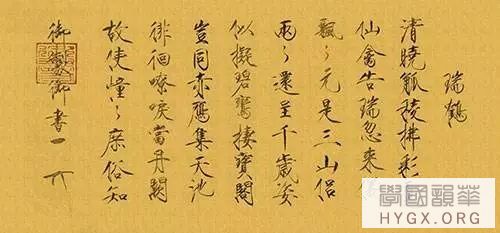 瑞鶴
清曉觚稜拂彩
仙禽告瑞忽來
飄〻元是三山侶
兩〻還呈千歲姿
似擬碧鸞棲寶閣
豈同赤鴈集天池
徘徊嘹唳當丹闕
故使憧〻庶俗知
御製御書
華韻國學
HYGX.ORG